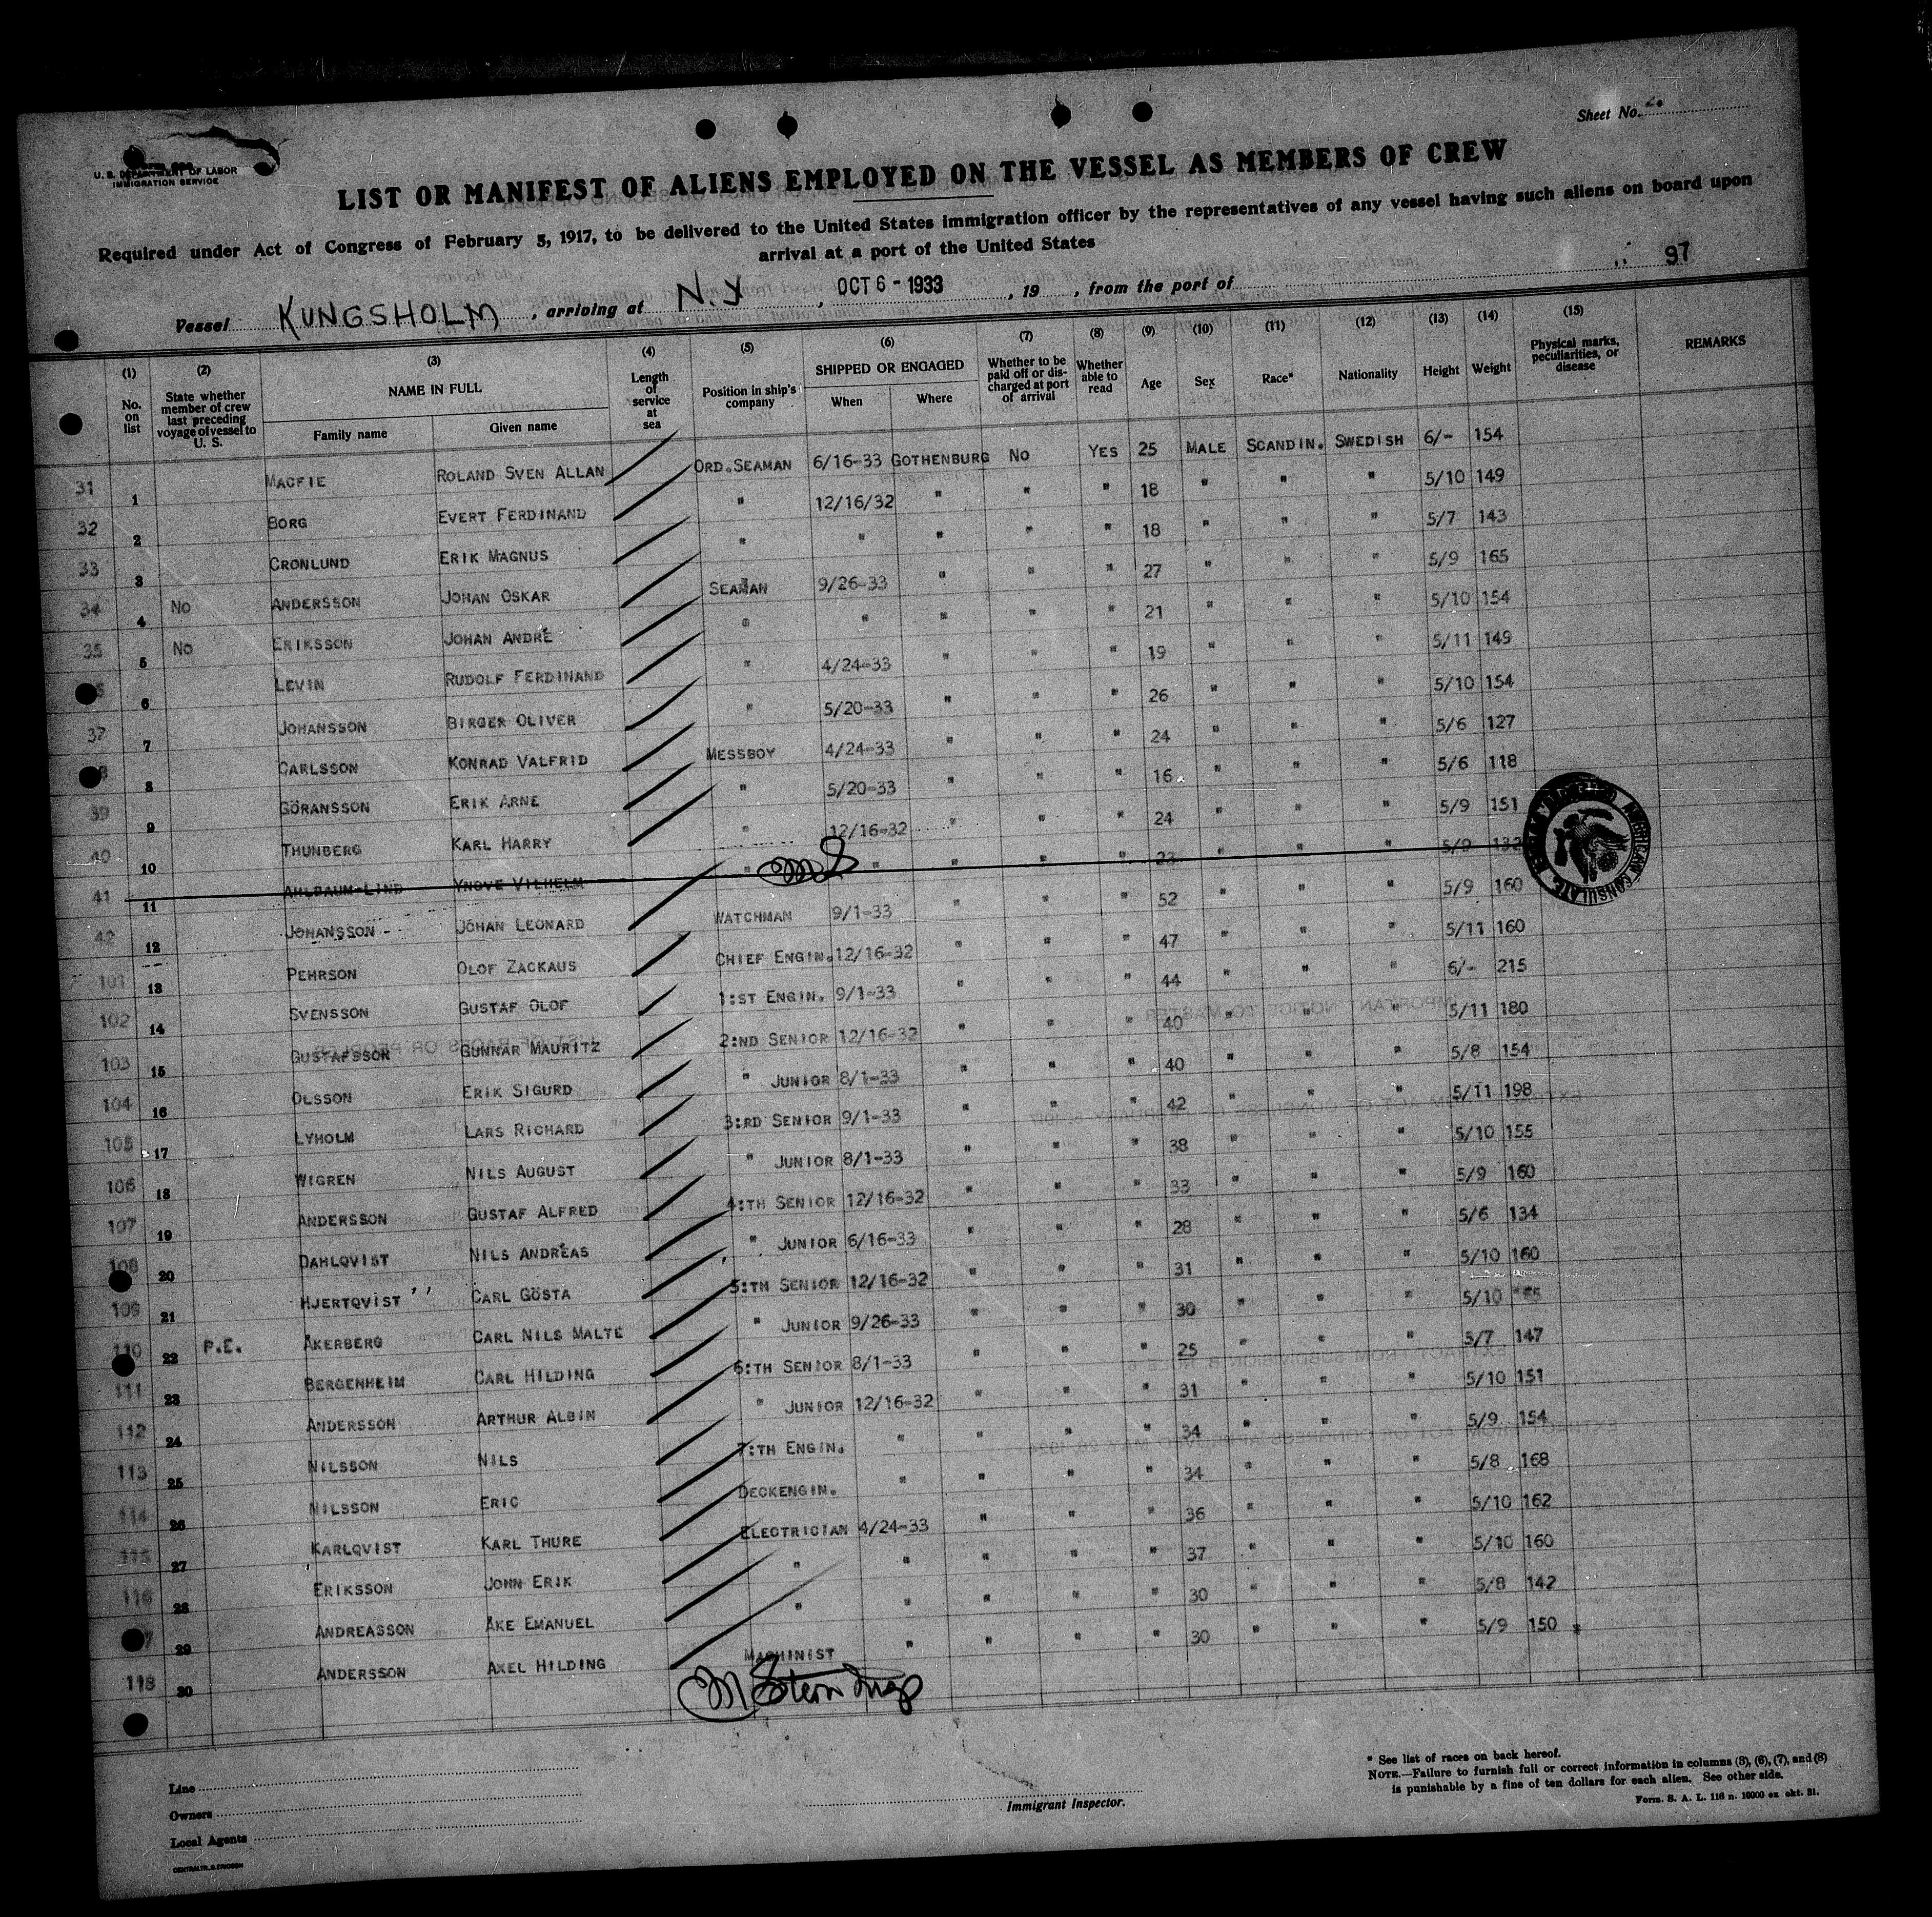 Sheet No. 2.
U. S. DEPARTMENT OF LABOR
IMMIGRATION SERVICE
LIST OR MANIFEST OF ALIENS EMPLOYED ON THE VESSEL AS MEMBERS OF CREW
Required under Act of Congress of February 5, 1917, to be delivered to the United States immigration officer by the representatives of any vessel having such aliens on board upon
arrival at a port of the United States
97
Vessel KUNGSHOLM, arriving at N.Y, OCT 6 - 1933, 19 , from the port of
(1) No. on list
(2) State whether member of crew last preceding voyage of vessel to U. S.
(3) NAME IN FULL Family name Given name
(4) Length of service at sea
(5) Position in ship's company
(6) SHIPPED OR ENGAGED When Where
(7) Whether to be paid off or discharged at port of arrival
(8) Whether able to read
(9) Age
(10) Sex
(11) Race*
(12) Nationality
(13) Height
(14) Weight
(15) Physical marks, peculiarities, or disease
REMARKS
31 1 MACFIE ROLAND SVEN ALLAN ORD.SEAMAN 6/16-33 GOTHENBURG NO YES 25 MALE SCANDIN. SWEDISH 6/- 154
32 2 BORG EVERT FERDINAND " 12/16/32 " " " 18 " " " 5/10 149
33 3 CRONLUND ERIK MAGNUS " " " " " 18 " " " 5/7 143
34 4 NO ANDERSSON JOHAN OSKAR SEAMAN 9/26-33 " " " 27 " " " 5/9 165
35 5 NO ERIKSSON JOHAN ANDRÉ " " " " " 21 " " " 5/10 154
6 LEVIN RUDOLF FERDINAND " 4/24-33 " " " 19 " " " 5/11 149
37 7 JOHANSSON BIRGER OLIVER " 5/20-33 " " " 26 " " " 5/10 154
8 CARLSSON KONRAD VALFRID MESSBOY 4/24-33 " " " 24 " " " 5/6 127
39 9 GÖRANSSON ERIK ARNE " 5/20-33 " " " 16 " " " 5/6 118
40 10 THUNBERG KARL HARRY " 12/16-32 " " " 24 " " " 5/9 151
41 11 AHLBAUM-LIND YNGVE VILHELM " " " " " 23 " " " 5/9 132
42 12 JOHANSSON JOHAN LEONARD WATCHMAN 9/1-33 " " " 52 " " " 5/9 160
101 13 PEHRSON OLOF ZACKAUS CHIEF ENGIN. 12/16-32 " " " 47 " " " 5/11 160
102 14 SVENSSON GUSTAF OLOF 1:ST ENGIN. 9/1-33 " " " 44 " " " 6/- 215
103 15 GUSTAFSSON GUNNAR MAURITZ 2:ND SENIOR 12/16-32 " " " 40 " " " 5/11 180
104 16 OLSSON ERIK SIGURD " JUNIOR 8/1-33 " " " 40 " " " 5/8 154
105 17 LYHOLM LARS RICHARD 3:RD SENIOR 9/1-33 " " " 42 " " " 5/11 198
106 18 WIGREN NILS AUGUST " JUNIOR 8/1-33 " " " 38 " " " 5/10 155
107 19 ANDERSSON GUSTAF ALFRED 4:TH SENIOR 12/16-32 " " " 33 " " " 5/9 160
108 20 DAHLQVIST NILS ANDRÉAS " JUNIOR 6/16-33 " " " 28 " " " 5/6 134
109 21 HJERTQVIST CARL GÖSTA 5:TH SENIOR 12/16-32 " " " 31 " " " 5/10 160
110 22 P.E. ÅKERBERG CARL NILS MALTE " JUNIOR 9/26-33 " " " 30 " " " 5/10
111 23 BERGENHEIM CARL HILDING 6:TH SENIOR 8/1-33 " " " 25 " " " 5/7 147
112 24 ANDERSSON ARTHUR ALBIN " JUNIOR 12/16-32 " " " 31 " " " 5/10 151
113 25 NILSSON NILS 7:TH ENGIN. " " " " 34 " " " 5/9 154
114 26 NILSSON ERIC DECKENGIN. " " " " 34 " " " 5/8 168
115 27 KARLQVIST KARL THURE ELECTRICIAN 4/24-33 " " " 36 " " " 5/10 162
116 28 ERIKSSON JOHN ERIK " " " " " 37 " " " 5/10 160
29 ANDREASSON ÅKE EMANUEL " " " " " 30 " " " 5/8 142
118 30 ANDERSSON AXEL HILDING MACHINIST " " " " 30 " " " 5/9 150
AMERICAN CONSULATE
Line
Owners
Local Agents
CENTRALTR. G. ERICSON
Immigrant Inspector.
* See list of races on back hereof.
NOTE.—Failure to furnish full or correct information in columns (3), (6), (7), and (8)
is punishable by a fine of ten dollars for each alien. See other side.
Form. S. A. L. 116 n. 10000 ex okt. 31.